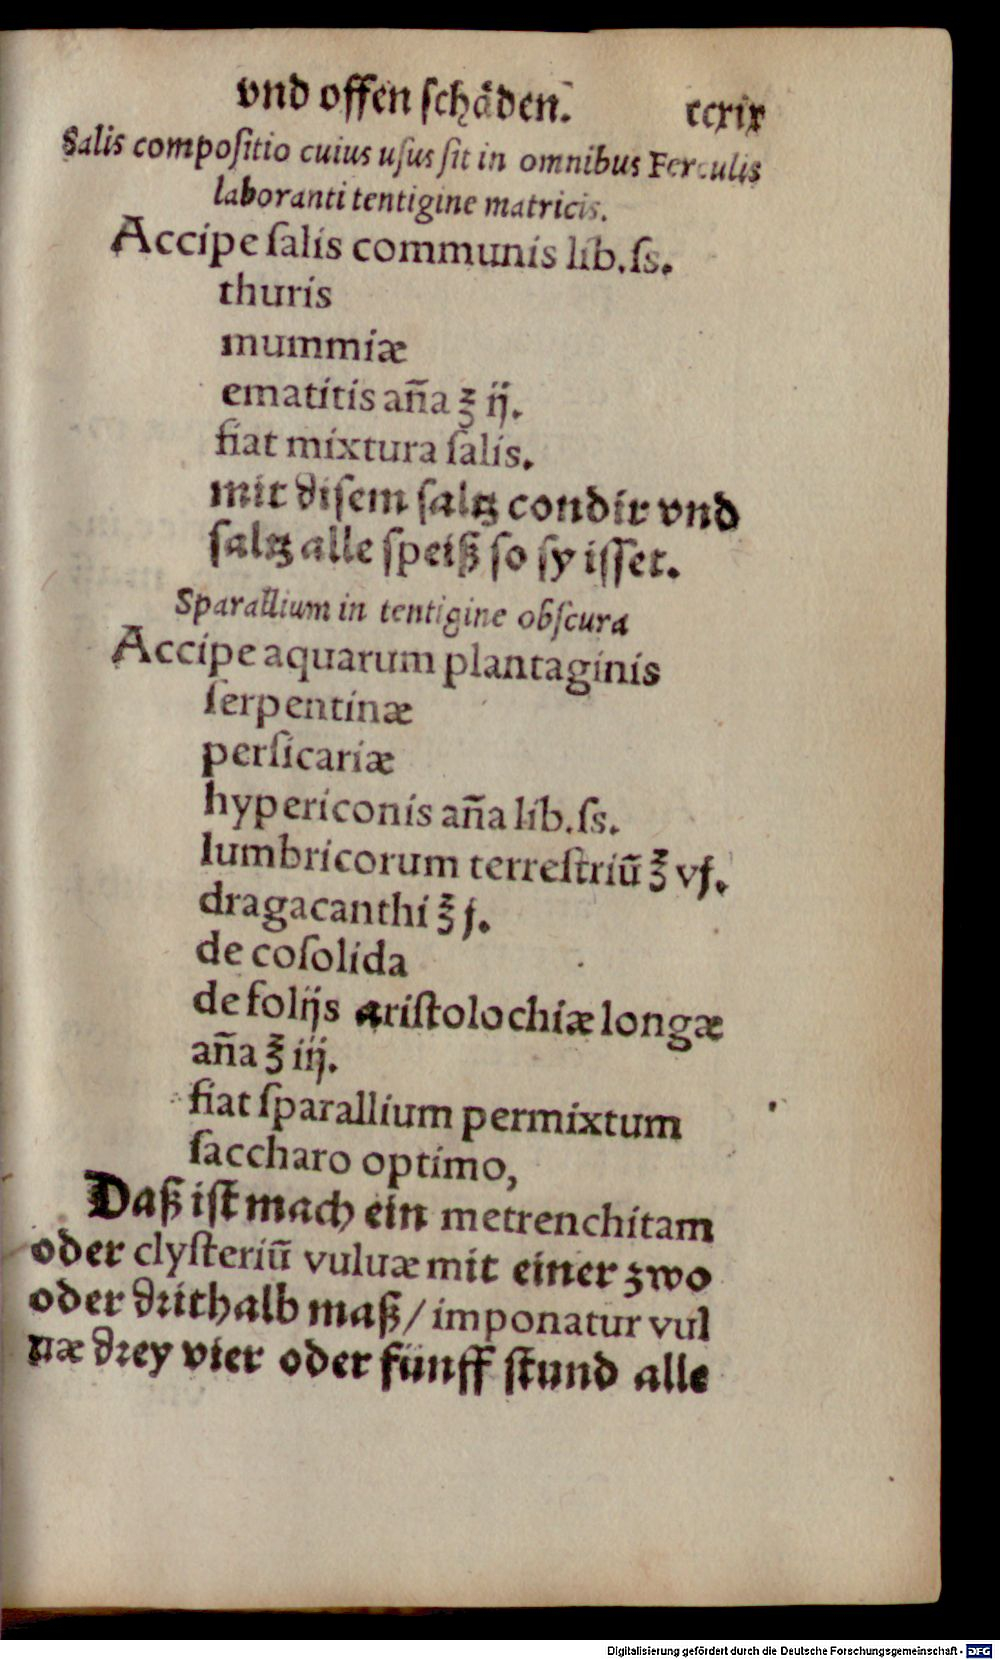 vnd offen schåden. ccxix
Salis compoſitio cuius uſus ſit in omnibus Ferculis
laboranti tentigine matricis.
Accipe ſalis communis lib.ſs.
thuris
mummiæ
ematitis an̄a ʒ ij.
fiat mixtura ſalis.
mit diſem ſaltz condir vnd
ſaltz alle ſpeiß ſo ſy iſſet.
Sparallium in tentigine obſcura
Accipe aquarum plantaginis
ſerpentinæ
perſicariæ
hypericonis an̄a lib.ſs.
lumbricorum terreſtriū ℥ vj.
dragacanthi ℥ j.
de coſolida
de folijs ariſtolochiæ longæ
an̄a ℥ iij.
fiat ſparallium permixtum
ſaccharo optimo,
Daß iſt mach ein metrenchitam
oder clyſteriū vuluæ mit einer zwo
oder drithalb maß/ imponatur vul
uæ drey vier oder fünff ſtund alle
Digitalisierung gefördert durch die Deutsche Forschungsgemeinschaft - DFG